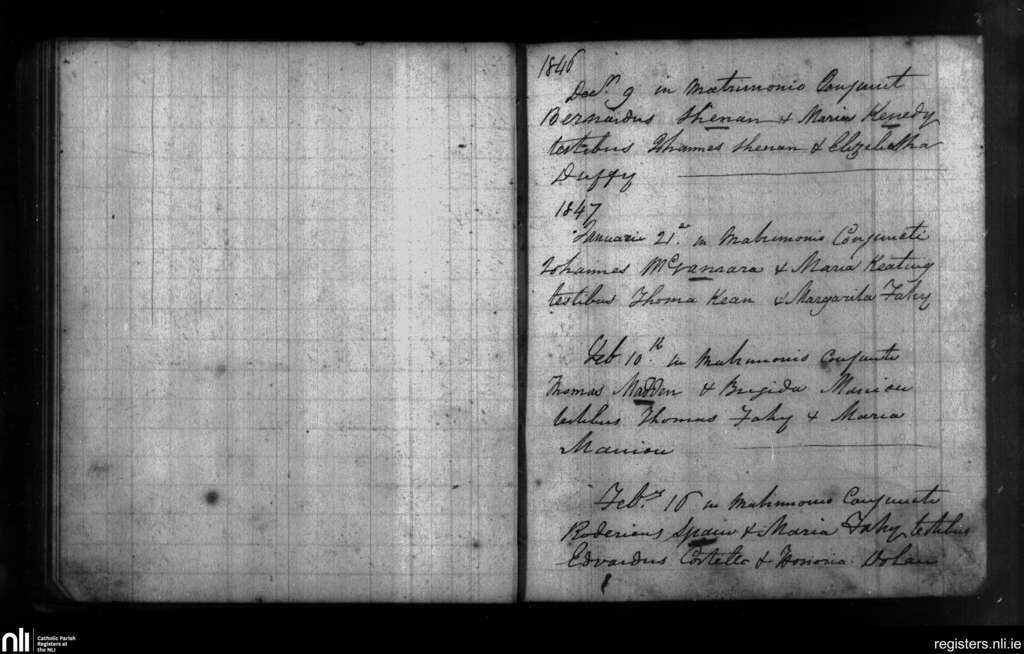 1846
Decr. 9 in Matrimonio Conjunct
Bernardus Shenan & Maria Kenedy
testibus Johannes Shenan & Elizibetha
Duffy
1847
Januarii 21.a in Matrimonio Conjuncti
Johannes McNamara & Maria Keating
testibus Thoma Kean & Margarita Fahy
Feb 10.th in Matrimonio Conjuncti
Thomas Madden & Brigida Manion
testibus Thomas Fahy & Maria
Manion
Feb. 16 in Matrimonio Conjuncti
Rodericus Spain & Maria Fahy testibus
Edvardus Costello & Honoria Dolan
nli
Catholic Parish
Registers at
the NLI
registers.nli.ie